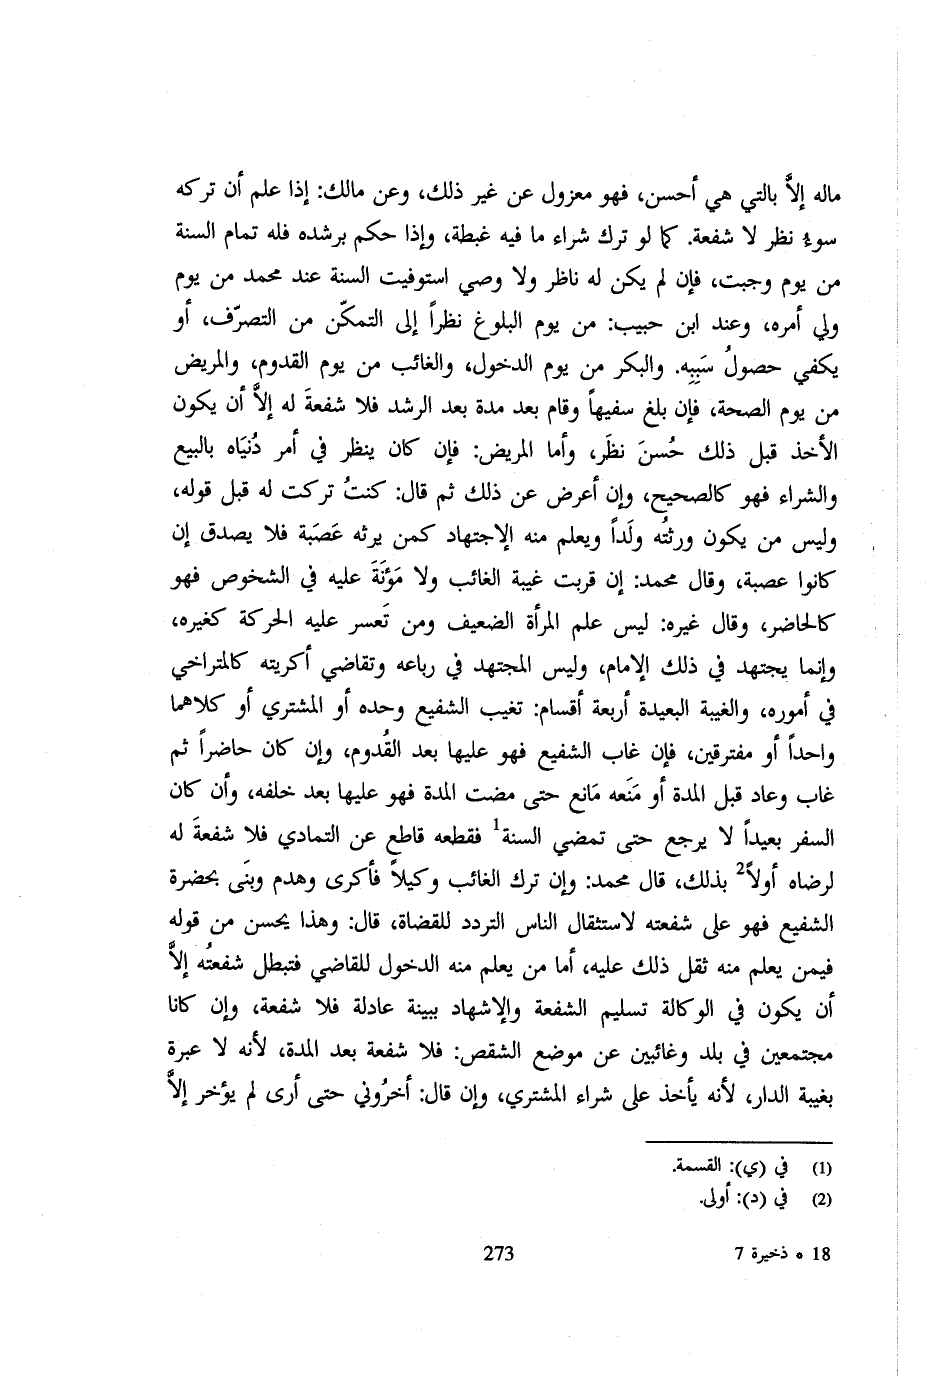 ماله إلاَّ بالتي هي أحسن، فهو معزول عن غير ذلك، وعن مالك: إذا علم أن تركه
سوءُ نظر لا شفعة. كما لو ترك شراء ما فيه غبطة، وإذا حكم برشده فله تمام السنة
من يوم وجبت، فإن لم يكن له ناظر ولا وصي استوفيت السنة عند محمد من يوم
ولي أمره، وعند ابن حبيب: من يوم البلوغ نظراً إلى التمكّن من التصرّف، أو
يكفي حصولُ سَبَبِه. والبكر من يوم الدخول، والغائب من يوم القدوم، والمريض
من يوم الصحة، فإن بلغ سفيهاً وقام بعد مدة بعد الرشد فلا شفعةَ له إلاَّ أن يكون
الأخذ قبل ذلك حُسنَ نظَر، وأما المريض: فإن كان ينظر في أمر دُنيَاه بالبيع
والشراء فهو كالصحيح، وإن أعرض عن ذلك ثم قال: كنتُ تركت له قبل قوله،
وليس من يكون ورثتُه ولَداً ويعلم منه الإجتهاد كمن يرثه عَصَبة فلا يصدق إن
كانوا عصبة، وقال محمد: إن قربت غيبة الغائب ولا مَؤنَةَ عليه في الشخوص فهو
كالحاضر، وقال غيره: ليس علم المرأة الضعيف ومن تَعسر عليه الحركة كغيره،
وإنما يجتهد في ذلك الإمام، وليس المجتهد في رباعه وتقاضي أكريته كالمتراخي
في أموره، والغيبة البعيدة أربعة أقسام: تغيب الشفيع وحده أو المشتري أو كلاهما
واحداً أو مفترقين، فإن غاب الشفيع فهو عليها بعد القُدوم، وإن كان حاضراً ثم
غاب وعاد قبل المدة أو مَنَعه مَانع حتى مضت المدة فهو عليها بعد خلفه، وأن كان
السفر بعيداً لا يرجع حتى تمضي السنة1 فقطعه قاطع عن التمادي فلا شفعةَ له
لرضاه أولاً2 بذلك، قال محمد: وإن ترك الغائب وكيلاً فأكرى وهدم وبنَى بحضرة
الشفيع فهو على شفعته لاستثقال الناس التردد للقضاة، قال: وهذا يحسن من قوله
فيمن يعلم منه ثقل ذلك عليه، أما من يعلم منه الدخول للقاضي فتبطل شفعتُه إلاَّ
أن يكون في الوكالة تسليم الشفعة والإشهاد ببينة عادلة فلا شفعة، وإن كانا
مجتمعين في بلد وغائبين عن موضع الشقص: فلا شفعة بعد المدة، لأنه لا عبرة
بغيبة الدار، لأنه يأخذ على شراء المشتري، وإن قال: أخرُوني حتى أرى لم يؤخر إلاَّ
(1) في (ي): القسمة.
(2) في (د): أولى.
18 * ذخيرة 7
273